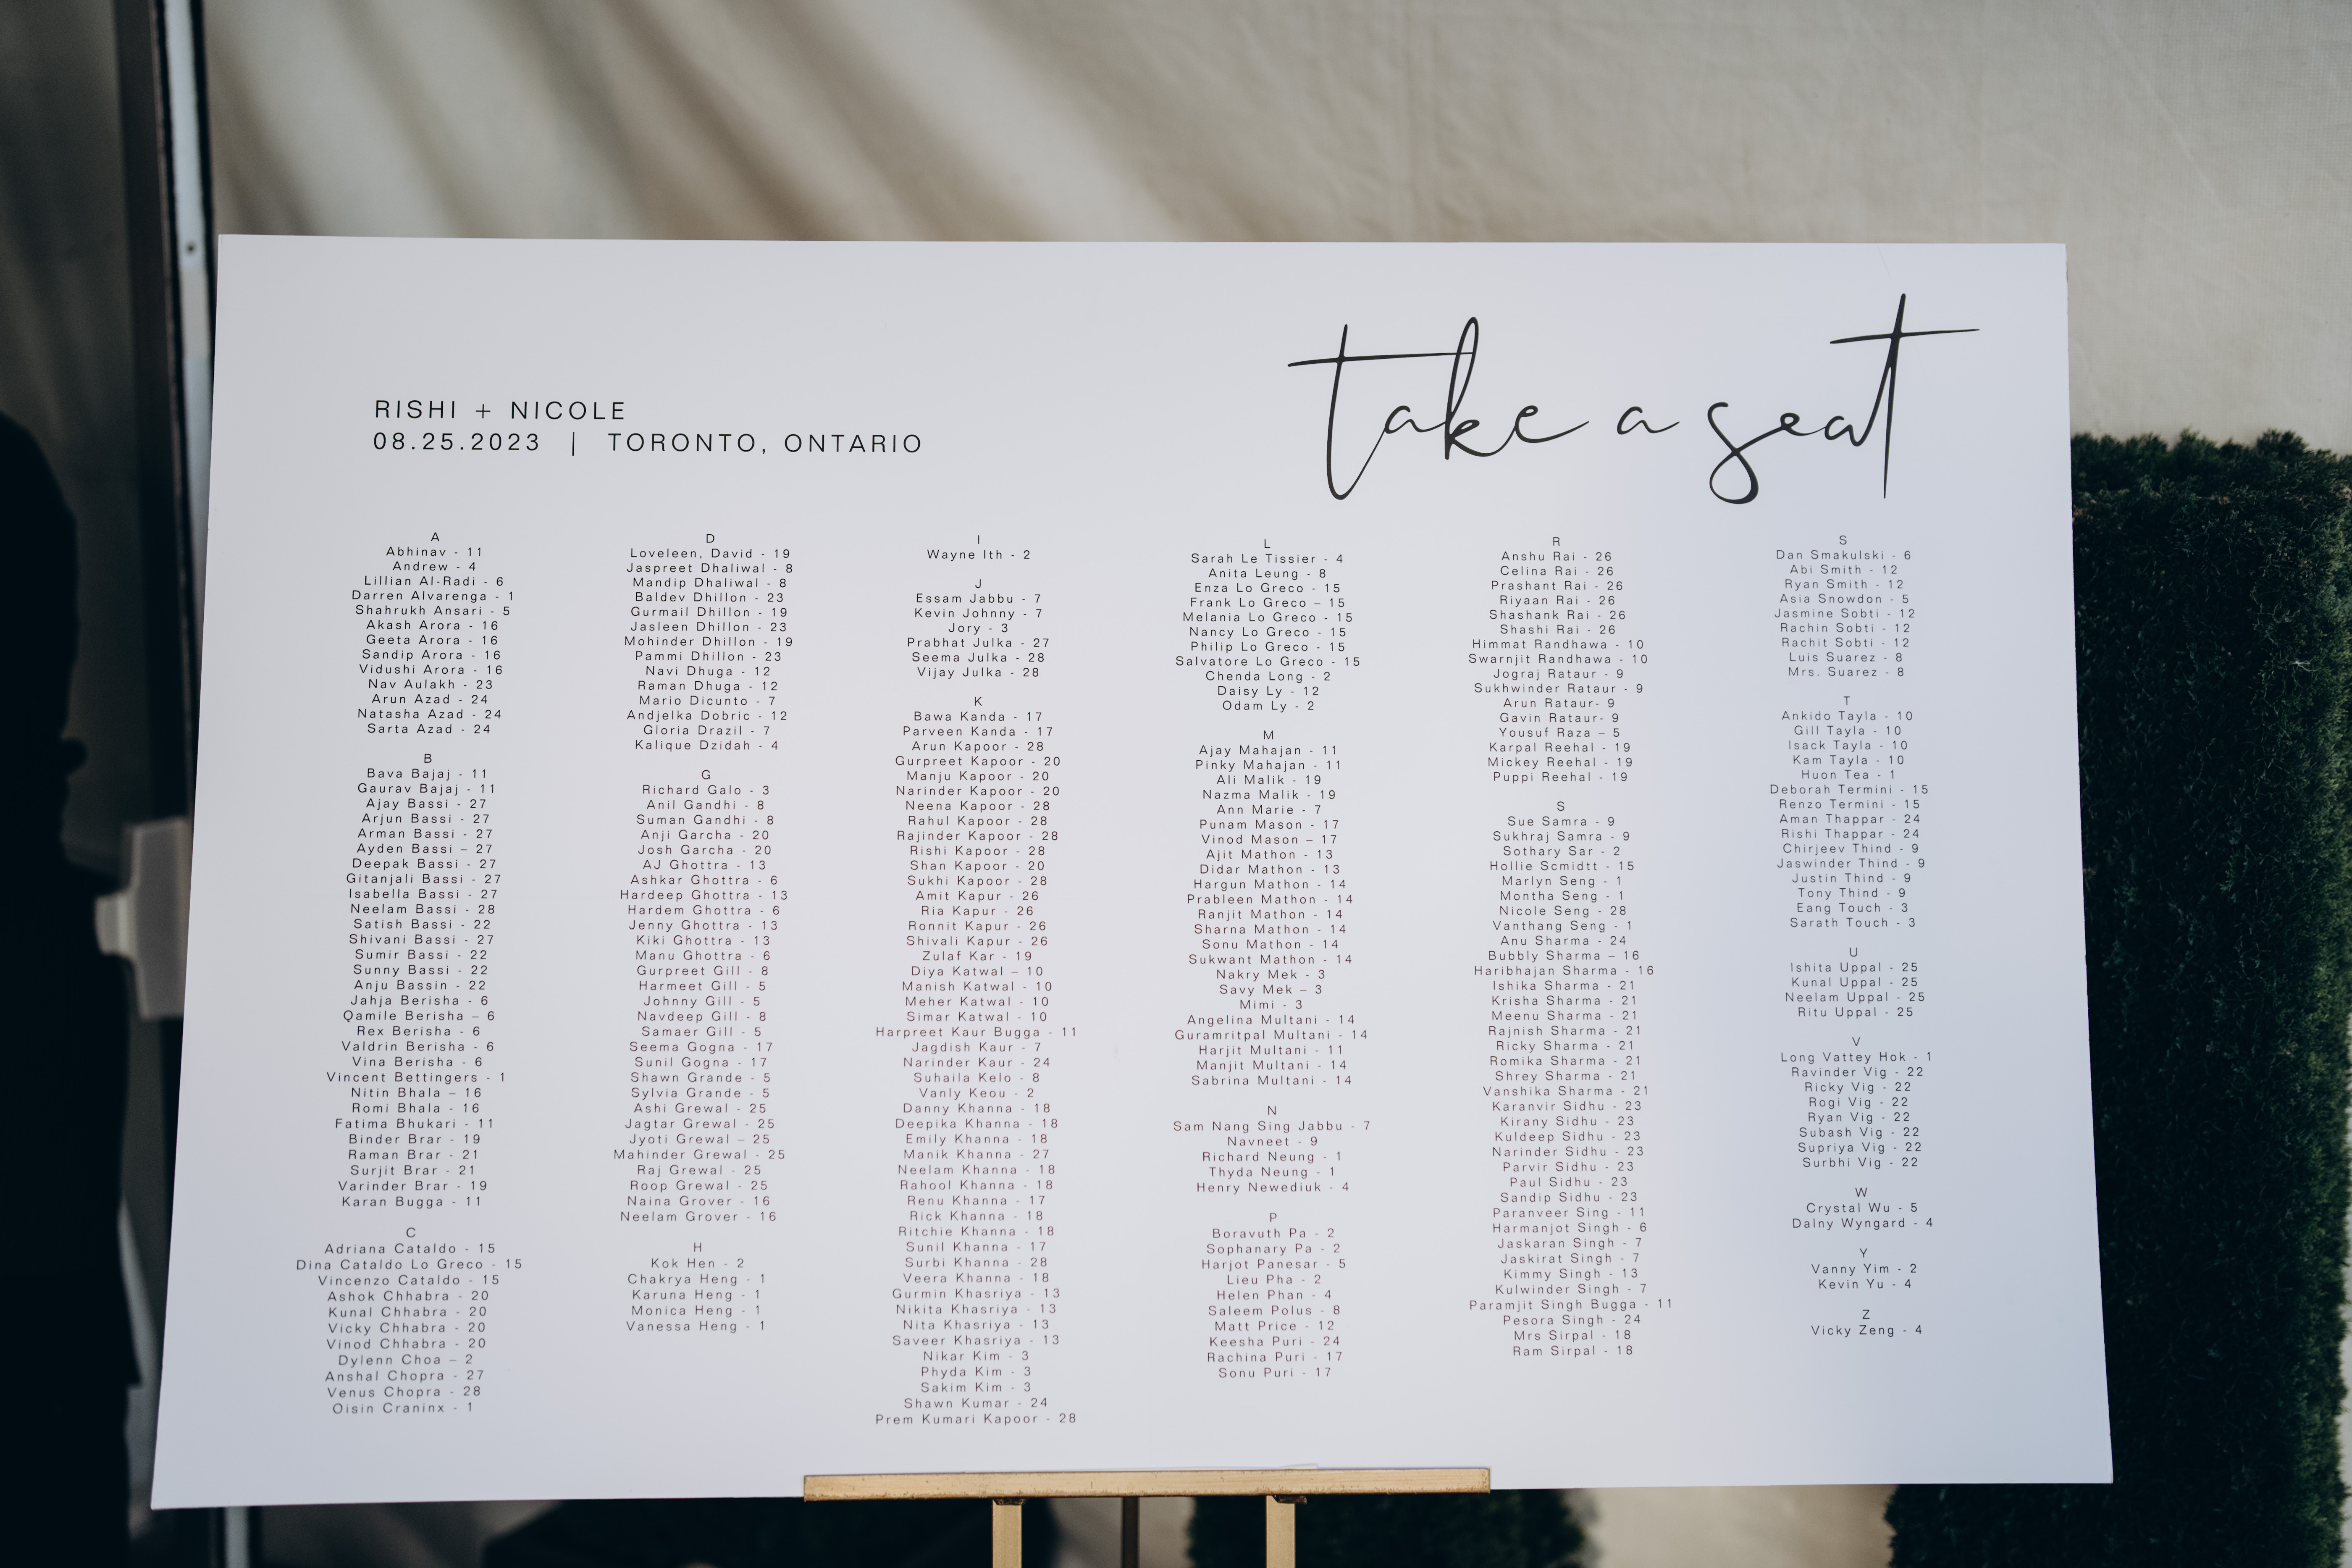 take a seat
RISHI + NICOLE
08.25.2023 | TORONTO, ONTARIO
A
Abhinav - 11
Andrew - 4
Lillian Al-Radi - 6
Darren Alvarenga - 1
Shahrukh Ansari - 5
Akash Arora - 16
Geeta Arora - 16
Sandip Arora - 16
Vidushi Arora - 16
Nav Aulakh - 23
Arun Azad - 24
Natasha Azad - 24
Sarta Azad - 24
B
Bava Bajaj - 11
Gaurav Bajaj - 11
Ajay Bassi - 27
Arjun Bassi - 27
Arman Bassi - 27
Ayden Bassi – 27
Deepak Bassi - 27
Gitanjali Bassi - 27
Isabella Bassi - 27
Neelam Bassi - 28
Satish Bassi - 22
Shivani Bassi - 27
Sumir Bassi - 22
Sunny Bassi - 22
Anju Bassin - 22
Jahja Berisha - 6
Qamile Berisha – 6
Rex Berisha - 6
Valdrin Berisha - 6
Vina Berisha - 6
Vincent Bettingers - 1
Nitin Bhala – 16
Romi Bhala - 16
Fatima Bhukari - 11
Binder Brar - 19
Raman Brar - 21
Surjit Brar - 21
Varinder Brar - 19
Karan Bugga - 11
C
Adriana Cataldo - 15
Dina Cataldo Lo Greco - 15
Vincenzo Cataldo - 15
Ashok Chhabra - 20
Kunal Chhabra - 20
Vicky Chhabra - 20
Vinod Chhabra - 20
Dylenn Choa – 2
Anshal Chopra - 27
Venus Chopra - 28
Oisin Craninx - 1
D
Loveleen, David - 19
Jaspreet Dhaliwal - 8
Mandip Dhaliwal - 8
Baldev Dhillon - 23
Gurmail Dhillon - 19
Jasleen Dhillon - 23
Mohinder Dhillon - 19
Pammi Dhillon - 23
Navi Dhuga - 12
Raman Dhuga - 12
Mario Dicunto - 7
Andjelka Dobric - 12
Gloria Drazil - 7
Kalique Dzidah - 4
G
Richard Galo - 3
Anil Gandhi - 8
Suman Gandhi - 8
Anji Garcha - 20
Josh Garcha - 20
AJ Ghottra - 13
Ashkar Ghottra - 6
Hardeep Ghottra - 13
Hardem Ghottra - 6
Jenny Ghottra - 13
Kiki Ghottra - 13
Manu Ghottra - 6
Gurpreet Gill - 8
Harmeet Gill - 5
Johnny Gill - 5
Navdeep Gill - 8
Samaer Gill - 5
Seema Gogna - 17
Sunil Gogna - 17
Shawn Grande - 5
Sylvia Grande - 5
Ashi Grewal - 25
Jagtar Grewal - 25
Jyoti Grewal – 25
Mahinder Grewal - 25
Raj Grewal - 25
Roop Grewal - 25
Naina Grover - 16
Neelam Grover - 16
H
Kok Hen - 2
Chakrya Heng - 1
Karuna Heng - 1
Monica Heng - 1
Vanessa Heng - 1
I
Wayne Ith - 2
J
Essam Jabbu - 7
Kevin Johnny - 7
Jory - 3
Prabhat Julka - 27
Seema Julka - 28
Vijay Julka - 28
K
Bawa Kanda - 17
Parveen Kanda - 17
Arun Kapoor - 28
Gurpreet Kapoor - 20
Manju Kapoor - 20
Narinder Kapoor - 20
Neena Kapoor - 28
Rahul Kapoor - 28
Rajinder Kapoor - 28
Rishi Kapoor - 28
Shan Kapoor - 20
Sukhi Kapoor - 28
Amit Kapur - 26
Ria Kapur - 26
Ronnit Kapur - 26
Shivali Kapur - 26
Zulaf Kar - 19
Diya Katwal – 10
Manish Katwal - 10
Meher Katwal - 10
Simar Katwal - 10
Harpreet Kaur Bugga - 11
Jagdish Kaur - 7
Narinder Kaur - 24
Suhaila Kelo - 8
Vanly Keou - 2
Danny Khanna - 18
Deepika Khanna - 18
Emily Khanna - 18
Manik Khanna - 27
Neelam Khanna - 18
Rahool Khanna - 18
Renu Khanna - 17
Rick Khanna - 18
Ritchie Khanna - 18
Sunil Khanna - 17
Surbi Khanna - 28
Veera Khanna - 18
Gurmin Khasriya - 13
Nikita Khasriya - 13
Nita Khasriya - 13
Saveer Khasriya - 13
Nikar Kim - 3
Phyda Kim - 3
Sakim Kim - 3
Shawn Kumar - 24
Prem Kumari Kapoor - 28
L
Sarah Le Tissier - 4
Anita Leung - 8
Enza Lo Greco - 15
Frank Lo Greco – 15
Melania Lo Greco - 15
Nancy Lo Greco - 15
Philip Lo Greco - 15
Salvatore Lo Greco - 15
Chenda Long - 2
Daisy Ly - 12
Odam Ly - 2
M
Ajay Mahajan - 11
Pinky Mahajan - 11
Ali Malik - 19
Nazma Malik - 19
Ann Marie - 7
Punam Mason - 17
Vinod Mason – 17
Ajit Mathon - 13
Didar Mathon - 13
Hargun Mathon - 14
Prableen Mathon - 14
Ranjit Mathon - 14
Sharna Mathon - 14
Sonu Mathon - 14
Sukwant Mathon - 14
Nakry Mek - 3
Savy Mek – 3
Mimi - 3
Angelina Multani - 14
Guramritpal Multani - 14
Harjit Multani - 11
Manjit Multani - 14
Sabrina Multani - 14
N
Sam Nang Sing Jabbu - 7
Navneet - 9
Richard Neung - 1
Thyda Neung - 1
Henry Newediuk - 4
P
Boravuth Pa - 2
Sophanary Pa - 2
Harjot Panesar - 5
Lieu Pha - 2
Helen Phan - 4
Saleem Polus - 8
Matt Price - 12
Keesha Puri - 24
Rachina Puri - 17
Sonu Puri - 17
R
Anshu Rai - 26
Celina Rai - 26
Prashant Rai - 26
Riyaan Rai - 26
Shashank Rai - 26
Shashi Rai - 26
Himmat Randhawa - 10
Swarnjit Randhawa - 10
Jograj Rataur - 9
Sukhwinder Rataur - 9
Arun Rataur- 9
Gavin Rataur- 9
Yousuf Raza – 5
Karpal Reehal - 19
Mickey Reehal - 19
Puppi Reehal - 19
S
Sue Samra - 9
Sukhraj Samra - 9
Sothary Sar - 2
Hollie Scmidtt - 15
Marlyn Seng - 1
Montha Seng - 1
Nicole Seng - 28
Vanthang Seng - 1
Anu Sharma - 24
Bubbly Sharma – 16
Haribhajan Sharma - 16
Ishika Sharma - 21
Krisha Sharma - 21
Meenu Sharma - 21
Rajnish Sharma - 21
Ricky Sharma - 21
Romika Sharma - 21
Shrey Sharma - 21
Vanshika Sharma - 21
Karanvir Sidhu - 23
Kirany Sidhu - 23
Kuldeep Sidhu - 23
Narinder Sidhu - 23
Parvir Sidhu - 23
Paul Sidhu - 23
Sandip Sidhu - 23
Paranveer Sing - 11
Harmanjot Singh - 6
Jaskaran Singh - 7
Jaskirat Singh - 7
Kimmy Singh - 13
Kulwinder Singh - 7
Paramjit Singh Bugga - 11
Pesora Singh - 24
Mrs Sirpal - 18
Ram Sirpal - 18
S
Dan Smakulski - 6
Abi Smith - 12
Ryan Smith - 12
Asia Snowdon - 5
Jasmine Sobti - 12
Rachin Sobti - 12
Rachit Sobti - 12
Luis Suarez - 8
Mrs. Suarez - 8
T
Ankido Tayla - 10
Gill Tayla - 10
Isack Tayla - 10
Kam Tayla - 10
Huon Tea - 1
Deborah Termini - 15
Renzo Termini - 15
Aman Thappar - 24
Rishi Thappar - 24
Chirjeev Thind - 9
Jaswinder Thind - 9
Justin Thind - 9
Tony Thind - 9
Eang Touch - 3
Sarath Touch - 3
U
Ishita Uppal - 25
Kunal Uppal - 25
Neelam Uppal - 25
Ritu Uppal - 25
V
Long Vattey Hok - 1
Ravinder Vig - 22
Ricky Vig - 22
Rogi Vig - 22
Ryan Vig - 22
Subash Vig - 22
Supriya Vig - 22
Surbhi Vig - 22
W
Crystal Wu - 5
Dalny Wyngard - 4
Y
Vanny Yim - 2
Kevin Yu - 4
Z
Vicky Zeng - 4